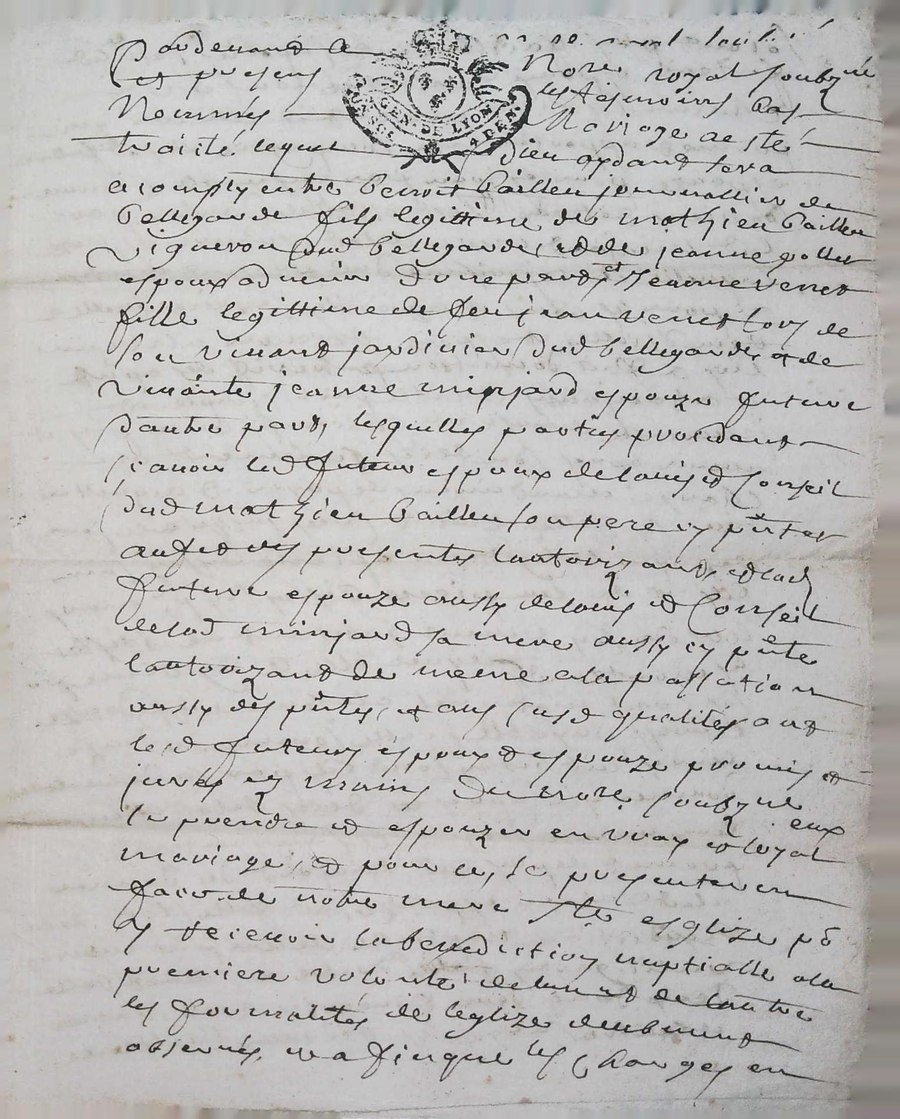 Pardevant
et presens Nore royal soubzné
Nommés les tesmoins bas
Mariage a esté
traicté lequel Dieu aydant sera
acomply entre benoit baillen journallier de
bellegarde fils legittime de mathieu baillen
vigneron dud bellegarde, et de jeanne
espoux advenir dune part, et Jeanne venet
fille legittime de feu jean venet lors de
son vivant jardinier dud bellegarde, et de
vivante jeanne minjard espouze future
dautre part, lesquelles parties procedant
scavoir led futur espoux de lavis et Conseil
dud mathieu baillen son pere cy pñt et
au fet des presentes lautorizant, et lad
future espouze aussy de lavis et Conseil
de lad minjard sa mere aussy cy pñte
lautorizant de mesme a la passation
aussy des pñtes, et aus susd qualités ont
led futurs espoux et espouze promis et
jurés ez mains du Nore soubzné eux
se prendre et espouzer en vray et loyal
mariage, et pour ce, se presenter en
face de notre mere Ste esglize po
y recevoir la benediction nuptialle a la
premiere volonté de lun et de lautre
les formalités de leglize deubment
observés, et a fin que les Charges en
GEN. DE LYON
4 DEN